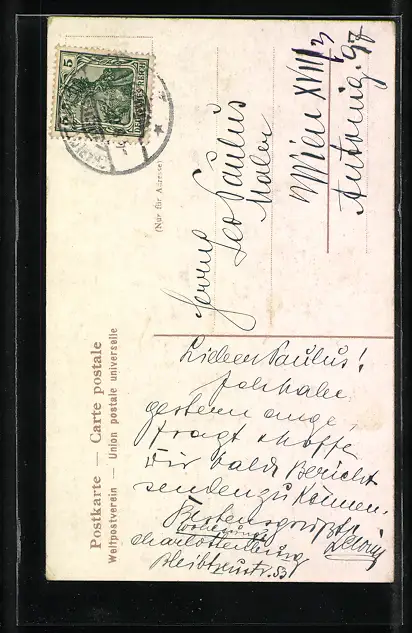 Postkarte — Carte postale
Weltpostverein — Union postale universelle
5
DEUTSCHES REICH
(Nur für Adresse)
Herrn
Leo Paulus
Maler
Wien XVIII/3
Antonig. 97
Lieber Paulus!
Ich habe
gestern ange,
fragt & hoffe
Dir bald Bericht
senden zu können.
Bestens grüßt
Charlottenburg
Bleibtreustr. 53